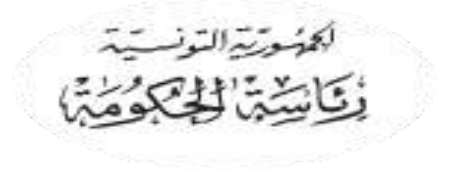 الجمهورية التونسية
رئاسة الحكومة